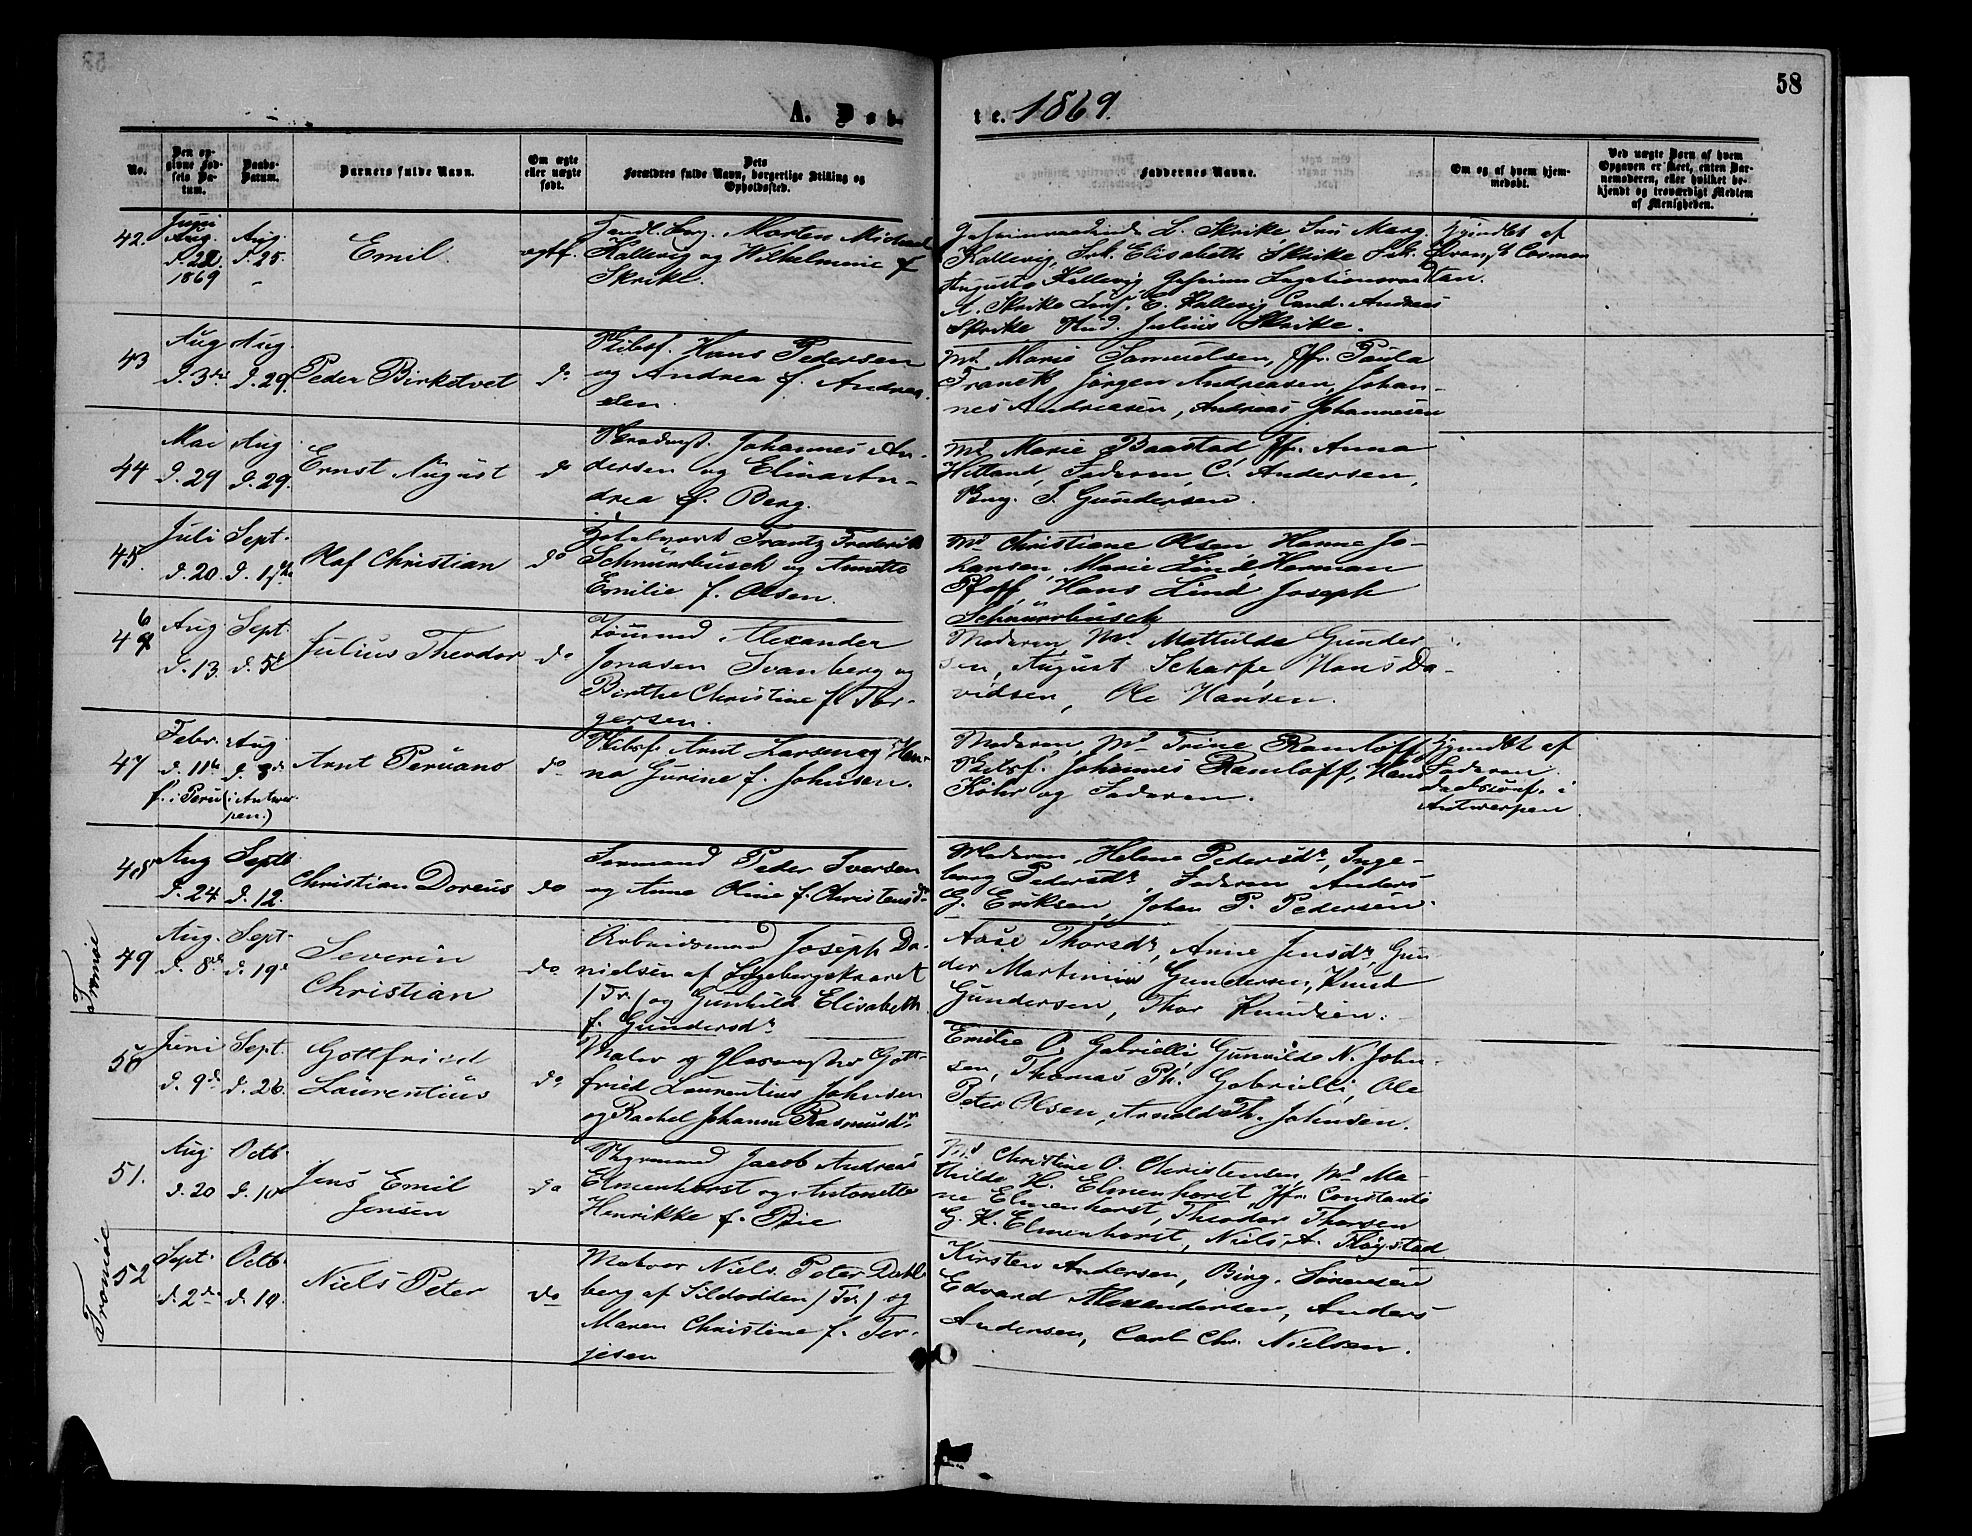 58
A. Døb-
te. 1869.
No.
Den op-
givne Fød-
sels Da-
tum.
Daabs-
Datum.
Barnets fulde Navn.
Om ægte
eller uægte
født.
Dets
Forældres fulde Navn, borgerlige Stilling og
Opholdssted.
Faddernes Navne.
Om og af hvem hjem-
medøbt.
Ved uægte Børn af hvem
Opgaven er skeet, enten Bar-
nemoderen, eller hvilket be-
kjendt og troværdigt Medlem
af Menigheden.
42.
Juni
Aug.
d. 22
1869
Aug.
d. 25.
Emil.
ægtef.
Morten Michael
Kallevig og Wilhelmine f.
Skrike.
L. Skrike Marg.
Kallevig, Frk. Elisabeth Skrike Frk.
Augusta Kallevig Legationsraad
A. Skrike E. Kallevig Cand. Andreas
Skrike Stud. Julius Skrike.
Hjemdøbt af
43
Aug
d. 3die
Aug
d. 29.
Peder Birketvet
do
Skibsf. Hans Pedersen
og Andrea f. Andrea-
sen.
Md. Marie Samuelsen, Jfr. Paula
Franck, Jørgen Andreasen, Johan-
nes Andreasen, Andreas Johannesen
44
Mai
d. 29
Aug
d. 29.
Ernst August
do
Johannes An-
dersen og Elina An-
drea f. Berg.
Md. Marie Baastad, Jfr. Anna
Hetland, Faderen, C. Andersen,
J. Gundersen.
45.
Juli
d. 20.
Sept.
d. 1ste
Olaf Christian
do
Hotelvært Frantz Frederik
Schnürrbusch og Annette
Emilie f. Olsen.
Md. Christiane Olsen, Hanne Jo-
hansen, Marie Lind, Herman
Pfaff, Hans Lind Joseph
Schnürrbusch
46
Aug
d. 13.
Sept.
d. 5t
Julius Theodor
do
Tømmermd. Alexander
Jonasen Svanberg og
Birthe Christine f. Tør-
gersen.
Moderen, Md. Mathilde Gunder
sen, August Scharfe, Hans Da-
vidsen, Ole Hansen.
47
Febr.
d. 11te
f. i Peru
Aug.
d. 8de
(i Antwer-
pen.)
Arnt Peruano
do
Skibsf. Arnt Larsen og Han-
na Gurine f. Johnsen.
Moderen, Md. Trine Ramloff,
Skibsf. Johannes Ramloff, Hans
Köhr og Faderen.
Hjemdøbt af
Faderen.
Daabsconf. i
Antwerpen
48
Aug
d. 24
Septb
d. 12.
Christian Doreus
do
Sømand Peder Iversen
og Anne Oline f. Christensdr
Moderen, Helene Pedersdr, Inge-
borg Pedersdr, Faderen Anders
G. Eriksen, Johan P. Pedersen.
Tromøe
49
Aug.
d. 8de
Sept.
d. 19de
Severin
Christian
do
Arbeidsmand Joseph Da-
nielsen af Løgebergskaaret
(Tr.) og Gunhild Elisabeth
f. Gundersdr
Aase Thorsdr, Anne Jensdr, Gun
der Martinius Gundersen, Knud
Gundersen, Thor Knudsen.
50
Juni
d. 9de
Sept.
d. 26.
Gottfried
Laurentius
do
Maler og Glasmester Gott-
fried Laurentius Johnsen
og Rachel Johanne Rasmusdr
Emilie O. Gabrielli, Gunvilde N. John-
sen, Thomas Ph. Gabrielli, Ole
Peter Olsen, Arnold Th. Johnsen.
51.
Aug.
d. 20
Octb.
d. 10
Jens Emil
Jensen
do
Jacob Andreas
Elmenhorst og Antonette
Henrikke f. Bie
Md. Christine O. Christensen, Md. Ma-
thilde H. Elmenhorst, Jfr. Constanse
Elmenhorst, Theodor Thorsen
G. K. Elmenhorst, Niels A. Fløystad
Tromøe
52
Sept.
d. 2de
Octb.
d. 10.
Niels Peter
do
Matros Niels Peter Dahl-
berg af Sildodden (Tr.) og
Maren Christine f. Ter-
jesen
Kirsten Andersen, Birg. Sørensen
Edvard Alexandersen, Anders
Andersen, Carl Chr. Nielsen.